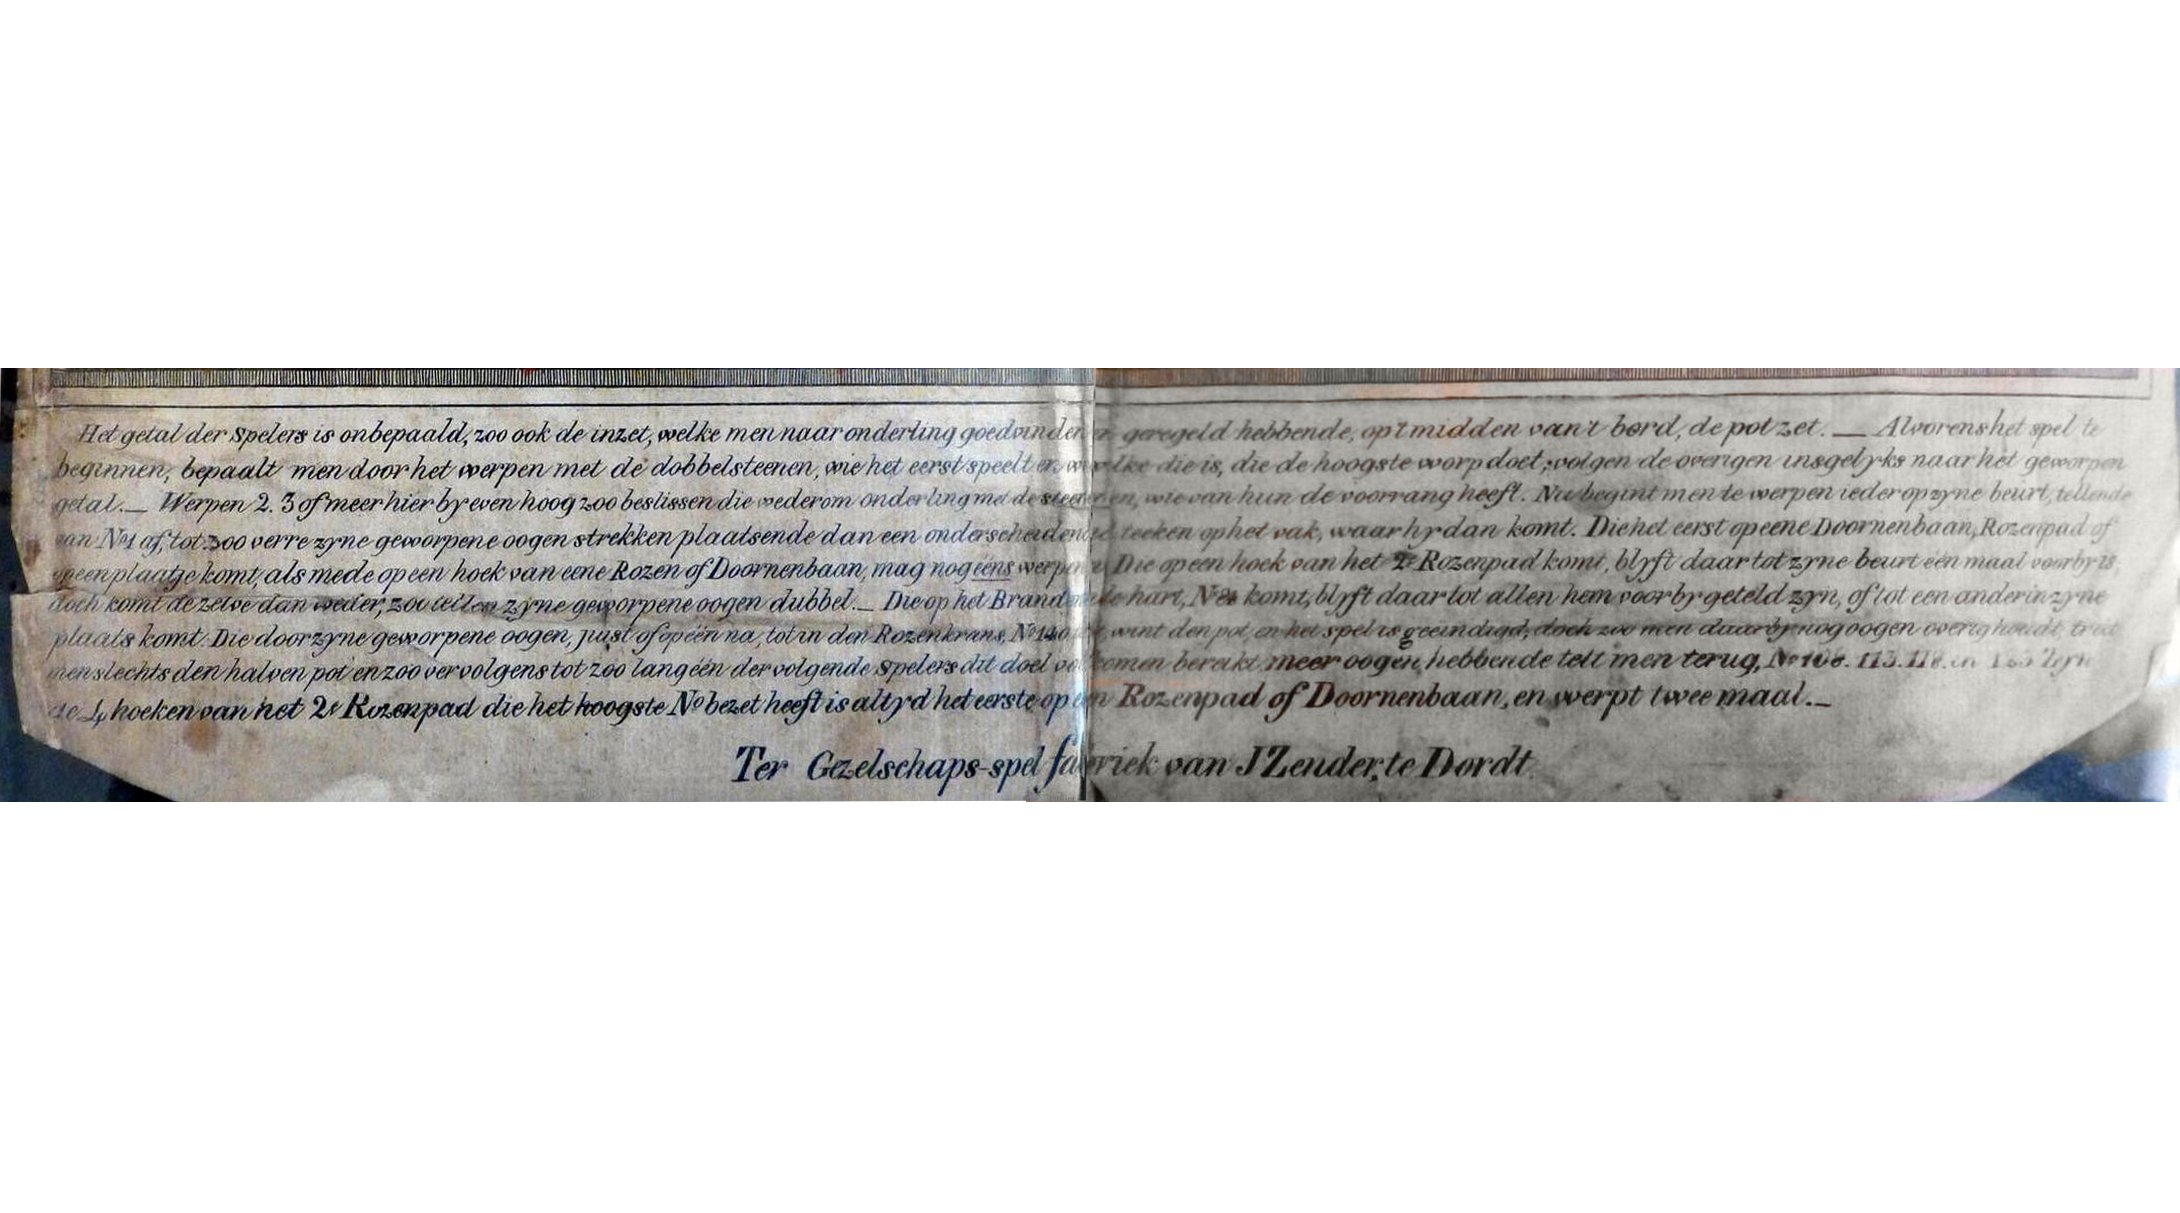 Het getal der Spelers is onbepaald, zoo ook de inzet, welke men naar onderling goedvinden geregeld hebbende, op't midden van't bord, de pot zet. — Alvorens het spel te
beginnen, bepaalt men door het werpen met de dobbelsteenen, wie het eerst speelt en welke die is, die de hoogste worp doet, volgen de overigen insgelyks naar het geworpen
getal. — Werpen 2. 3 of meer hier by even hoog zoo beslissen die wederom onderling met de steenen, wie van hun de voorrang heeft. Nu begint men te werpen ieder op zyne beurt, tellende
van No 1 af, tot zoo verre zyne geworpene oogen strekken plaatsende dan een onderscheidend teeken op het vak, waar hy dan komt. Die het eerst op eene Doornenbaan, Rozenpad of
op een plaatje komt, als mede op een hoek van eene Rozen of Doornenbaan, mag nog ééns werpen Die op een hoek van het 2e Rozenpad komt, blyft daar tot zyne beurt één maal voorby is,
doch komt de zelve dan weder, zoo tellen zyne geworpene oogen dubbel. — Die op het Brandende hart, No komt, blyft daar tot allen hem voorby geteld zyn, of tot een ander in zyne
plaats komt. Die door zyne geworpene oogen, juist of op één na, tot in den Rozenkrans, No 140 wint den pot, en het spel is geëindigd, doch zoo men daarby nog oogen overig houdt, trekt
men slechts den halven pot en zoo vervolgens tot zoo lang één der volgende Spelers dit doel volkomen bereikt meer oogen hebbende telt men terug, No 108. 113. 118. en 123 Zyn
de 4 hoeken van het 2e Rozenpad die het hoogste No bezet heeft is altyd het eerste op een Rozenpad of Doornenbaan, en werpt twee maal. —
Ter Gezelschaps-spel fabriek van J Zender, te Dordt